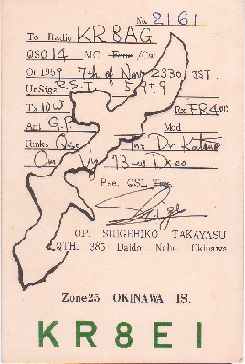 No 2161
To Radio KR8AG
QSO 14 MC
On 1959 7th of Nov 2330 JST.
Ur Sigs R.S.T. 599
Tx 10W Rx FR4
Ant G.P. Mod
Tnks QSO
Pse. QSL
OP. SHIGEHIKO TAKAYASU
QTH. 385 Daido Naha Okinawa
Zone25 OKINAWA IS.
KR8EI